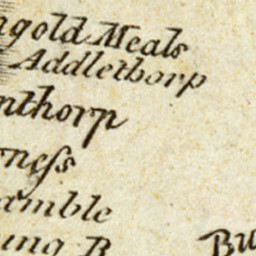 ngold Meals
Addlethorp
nthorp
rneſs
amble
ung R
Bu